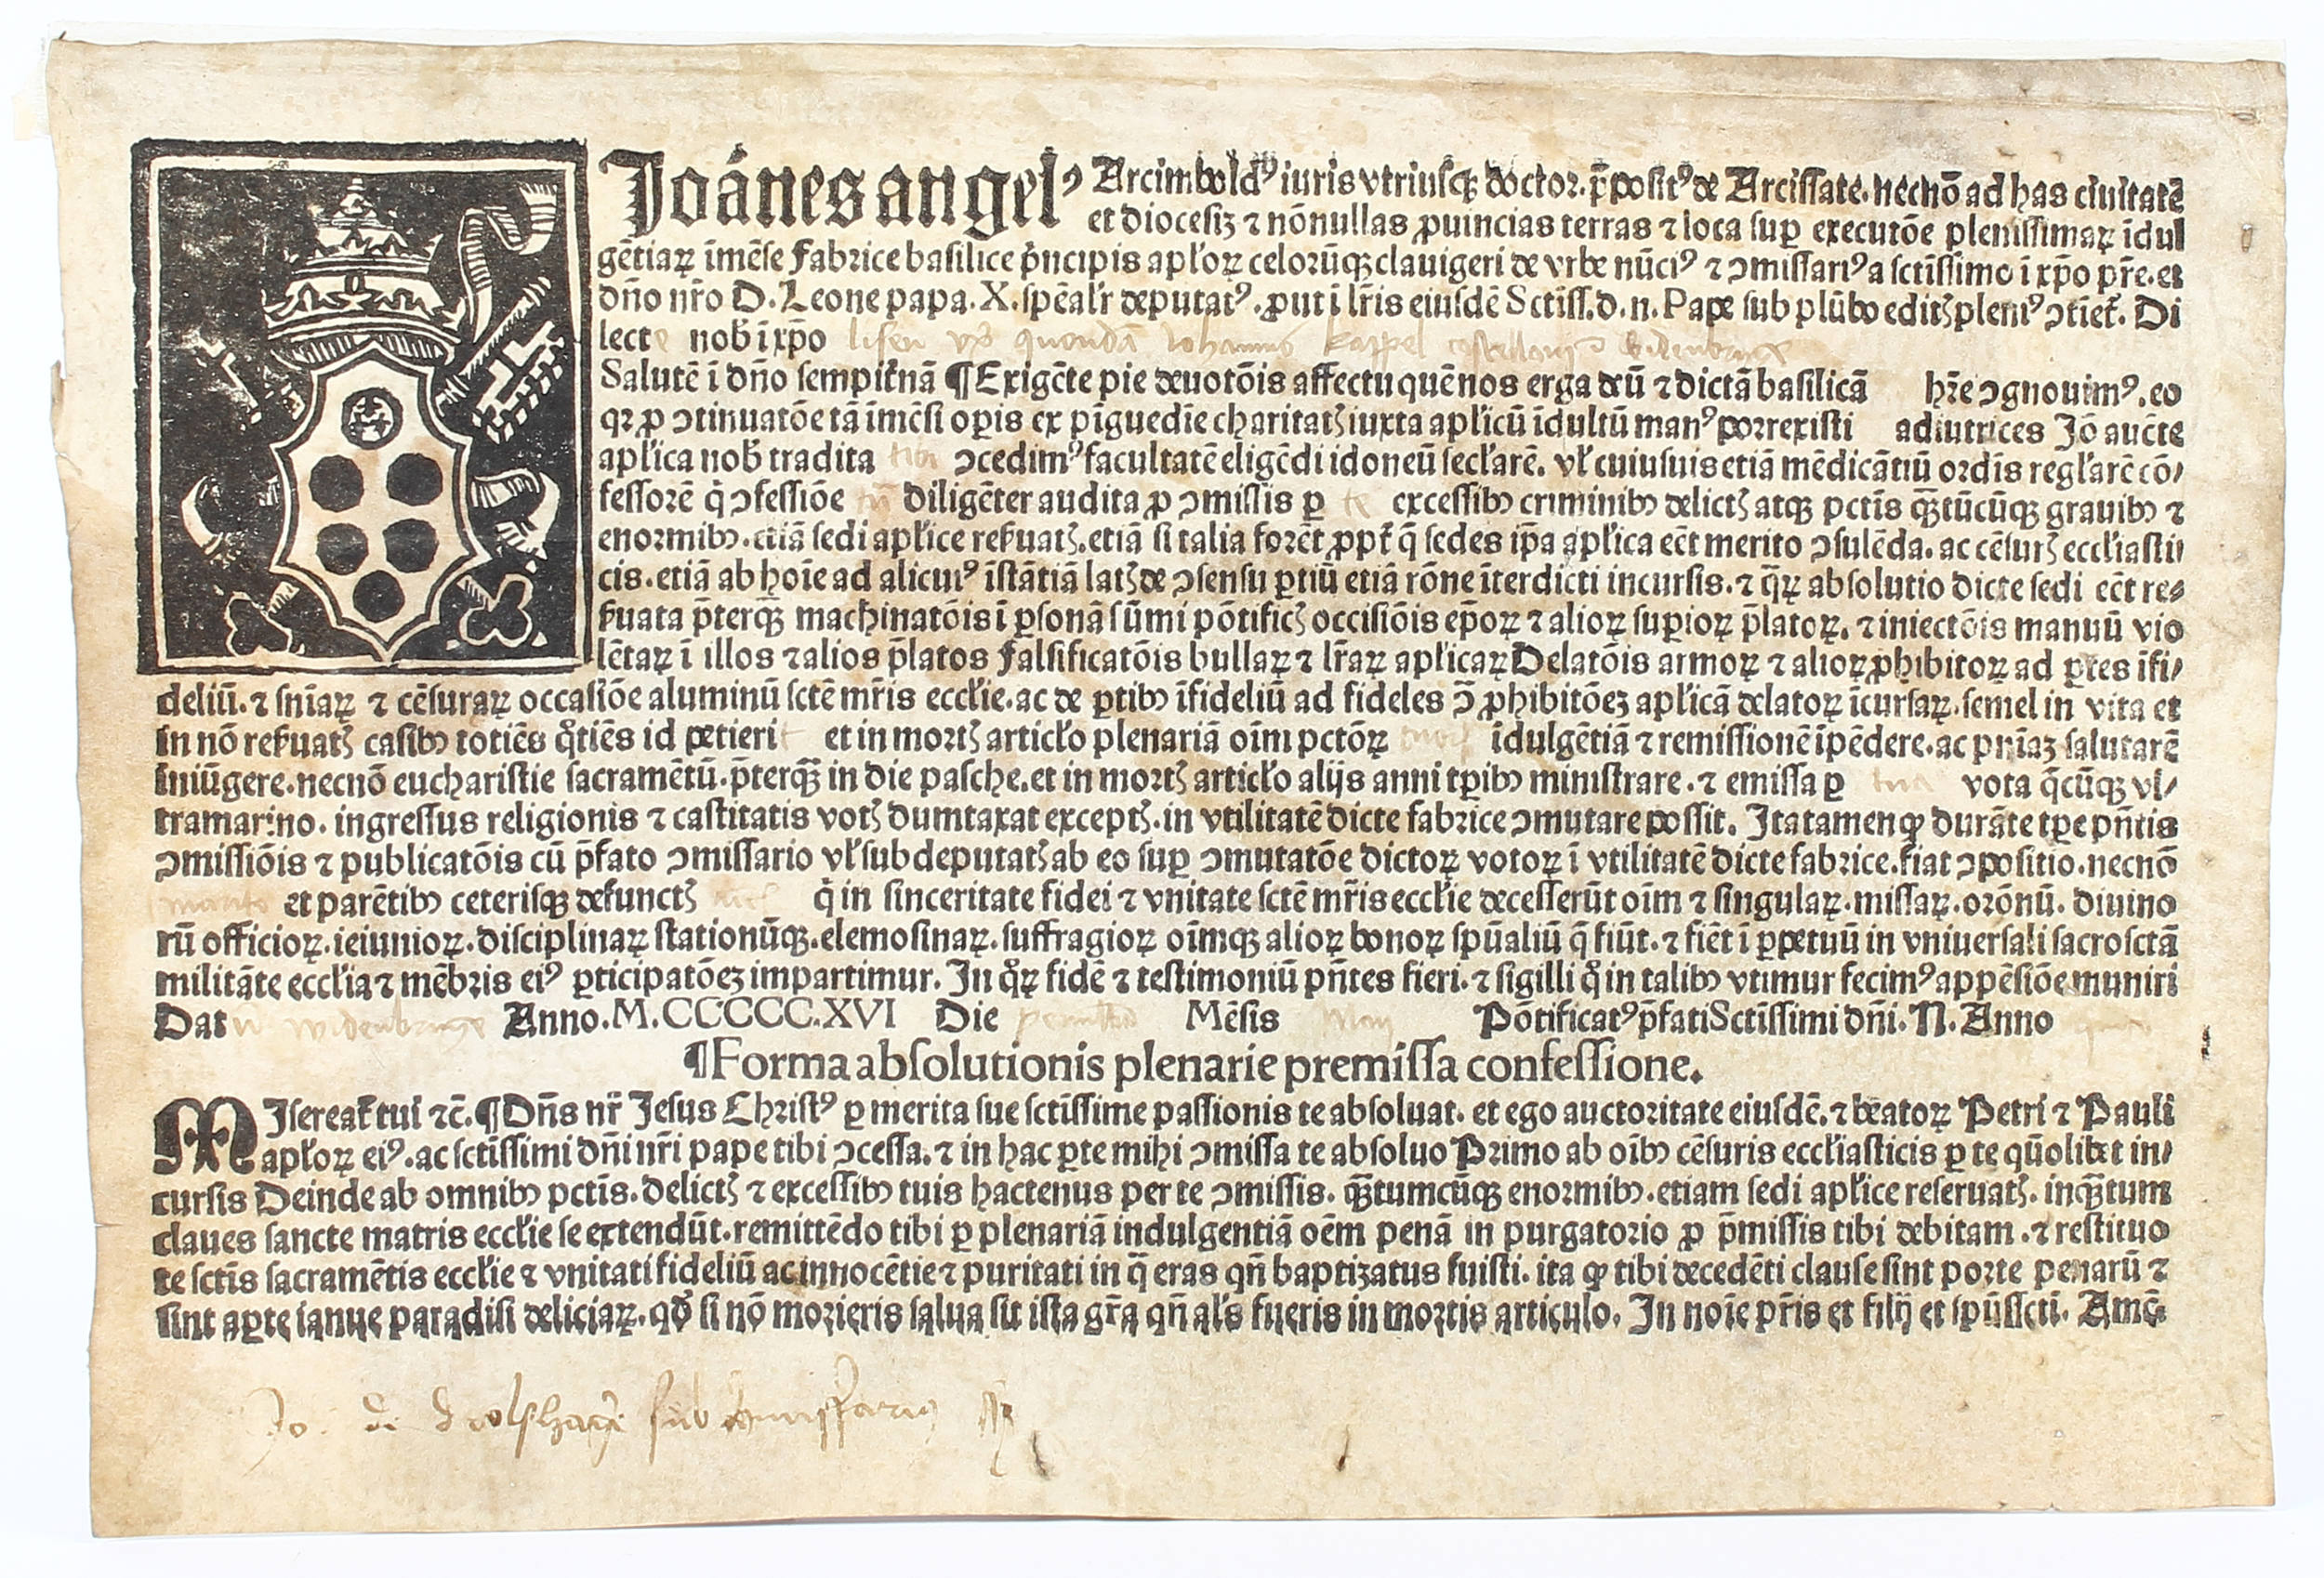 Joánes angelꝰ Arcimboldꝰ iuris vtriusqꝫ doctor. p̄positꝰ de Arcissate. necnō ad has ciuitatē
et diocesiꝫ ⁊ nōnullas ꝓuincias terras ⁊ loca sup executōe plenissimaꝝ īdul
gētiaꝝ īmēse fabrice basilice p̍ncipis apl̄oꝝ celorūqꝫ clauigeri de vrbe nūciꝰ ⁊ ↄmissariꝰ a sctīssimo ī xp̄o pr̄e. et
dño nr̄o D. Leone papa. X. spēal'r deputatꝰ. ꝓut ī lr̄is eiusdē Sctīss. d. n. Pape sub plūbo editꝭ pleniꝰ ↄtiēt̄. Di
lecte nob̄ ī xp̄o lisen vxͦ quondā Johannis kappel
Salutē ī dño sempit̄nā ¶ Exigēte pie deuotōis affectu quē nos erga deū ⁊ dictā basilicā hr̄e ↄgnouimꝰ. eo
qꝛ ꝓ ↄtinuatōe tā īmēsi oꝑis ex pīguedīe charitatꝭ iuxta apl'icū īdultū manꝰ porrexisti adiutrices Jō auct̄e
apl'ica nob̄ tradita tibi ↄcedimꝰ facultatē eligēdi idoneū secl'arē. vl' cuiusuis etiā mēdicātiū ordīs regl'arē cō/
fessorē q̍ ↄfessiōe tua diligēter audita ꝓ ↄmissis ꝑ te excessibꝫ criminibꝫ delictꝭ atqꝫ pctīs qꝫtūcūqꝫ grauibꝫ ⁊
enormibꝫ. etiā sedi apl'ice reẜuatꝭ. etiā si talia forēt ꝓpt̄ q̄ sedes ip̄a apl'ica eēt merito ↄsulēda. ac cēsurꝭ eccl'iasti/
cis. etiā ab hoīe ad alicuiꝰ īstātiā latꝭ de ↄsensu ꝑtiū etiā rōne īterdicti incursis. ⁊ q̄ꝝ absolutio dicte sedi eēt re-
ẜuata p̄terqꝫ machinatōis ī ꝑsonā sūmi pōtificꝭ occisiōis ep̄oꝝ ⁊ alioꝝ supioꝝ p̄latoꝝ. ⁊ iniectōis manuū vio
lētaꝝ ī illos ⁊ alios p̄latos falsificatōis bullaꝝ ⁊ lr̄aꝝ apl'icaꝝ Delatōis armoꝝ ⁊ alioꝝ ꝓhibitoꝝ ad ꝑtes īfi/
deliū. ⁊ snīaꝝ ⁊ cēsuraꝝ occasiōe aluminū sctē mr̄is eccl'ie. ac de ꝑtibꝫ īfideliū ad fideles ↄ̄ ꝓhibitōeꝫ apl'icā delatoꝝ īcursaꝝ. semel in vita et
in nō reẜuatꝭ casibꝫ totiēs qͦtiēs id petierit et in mortꝭ articl'o plenariā oīm pctōꝝ tuoꝝ īdulgētiā ⁊ remissionē īpēdere. ac pnīaꝫ salutarē
iniūgere. necnō eucharistie sacramētū. p̄terqꝫ in die pasche. et in mortꝭ articl'o alijs anni tꝑibꝫ ministrare. ⁊ emissa ꝑ te vota q̄cūqꝫ vl/
tramarino. ingressus religionis ⁊ castitatis votꝭ dumtaxat exceptꝭ. in vtilitatē dicte fabrice ↄmutare possit. Ita tamen ꝙ durāte tꝑe pn̄tis
ↄmissiōis ⁊ publicatōis cū p̄fato ↄmissario vl' sub deputatꝭ ab eo suꝑ ↄmutatōe dictoꝝ votoꝝ ī vtilitatē dicte fabrice. fiat ↄpositio. necnō
marito et parētibꝫ ceterisqꝫ defunctꝭ tuis q̍ in sinceritate fidei ⁊ vnitate sctē mr̄is eccl'ie decesserūt oīm ⁊ singulaꝝ. missaꝝ. orōnū. diuino
rū officioꝝ. ieiunioꝝ. disciplinaꝝ stationūqꝫ. elemosinaꝝ. suffragioꝝ oīmqꝫ alioꝝ bonoꝝ spūaliū q̄ fiūt. ⁊ fiēt ī ꝑpetuū in vniuersali sacrosctā
militāte eccl'ia ⁊ mēbris eiꝰ ꝑticipatōeꝫ impartimur. In qͦꝝ fidē ⁊ testimoniū pn̄tes fieri. ⁊ sigilli qͦ in talibꝫ vtimur fecimꝰ appēsiōe muniri
Datū widenbruge Anno. M.CCCCC.XVI Die penultia Mēsis May Pōtificatꝰ p̄fati Sctīssimi dñi. N. Anno quarto
¶Forma absolutionis plenarie premissa confessione.
MIsereat̄ tui ⁊c̄. ¶ Dñs nr̄ Jesus Christꝰ ꝑ merita sue sctīssime passionis te absoluat. et ego auctoritate eiusdē. ⁊ beatoꝝ Petri ⁊ Pauli
apl̄oꝝ eiꝰ. ac sctīssimi dñi nr̄i pape tibi ↄcessa. ⁊ in hac ꝑte mihi ↄmissa te absoluo Primo ab oībꝫ cēsuris eccl'iasticis ꝑ te qūolibet in/
cursis Deinde ab omnibꝫ pctīs. delictꝭ ⁊ excessibꝫ tuis hactenus per te ↄmissis. qꝫtumcūqꝫ enormibꝫ. etiam sedi apl'ice reseruatꝭ. inqꝫtum
claues sancte matris eccl'ie se extendūt. remittēdo tibi ꝑ plenariā indulgentiā oēm penā in purgatorio ꝓ p̄missis tibi debitam. ⁊ restituo
te sctīs sacramētis eccl'ie ⁊ vnitati fideliū ac innocētie ⁊ puritati in q̄ eras qn̄ baptizatus fuisti. ita ꝙ tibi decedēti clause sint porte penarū ⁊
sint aꝑte ianue paradisi deliciaꝝ. qd̄ si nō morieris salua sit ista gr̄a qn̄ al's fueris in mortis articulo. In noīe pr̄is et filij et spūssctī. Amē
Jo. de subcommissarius